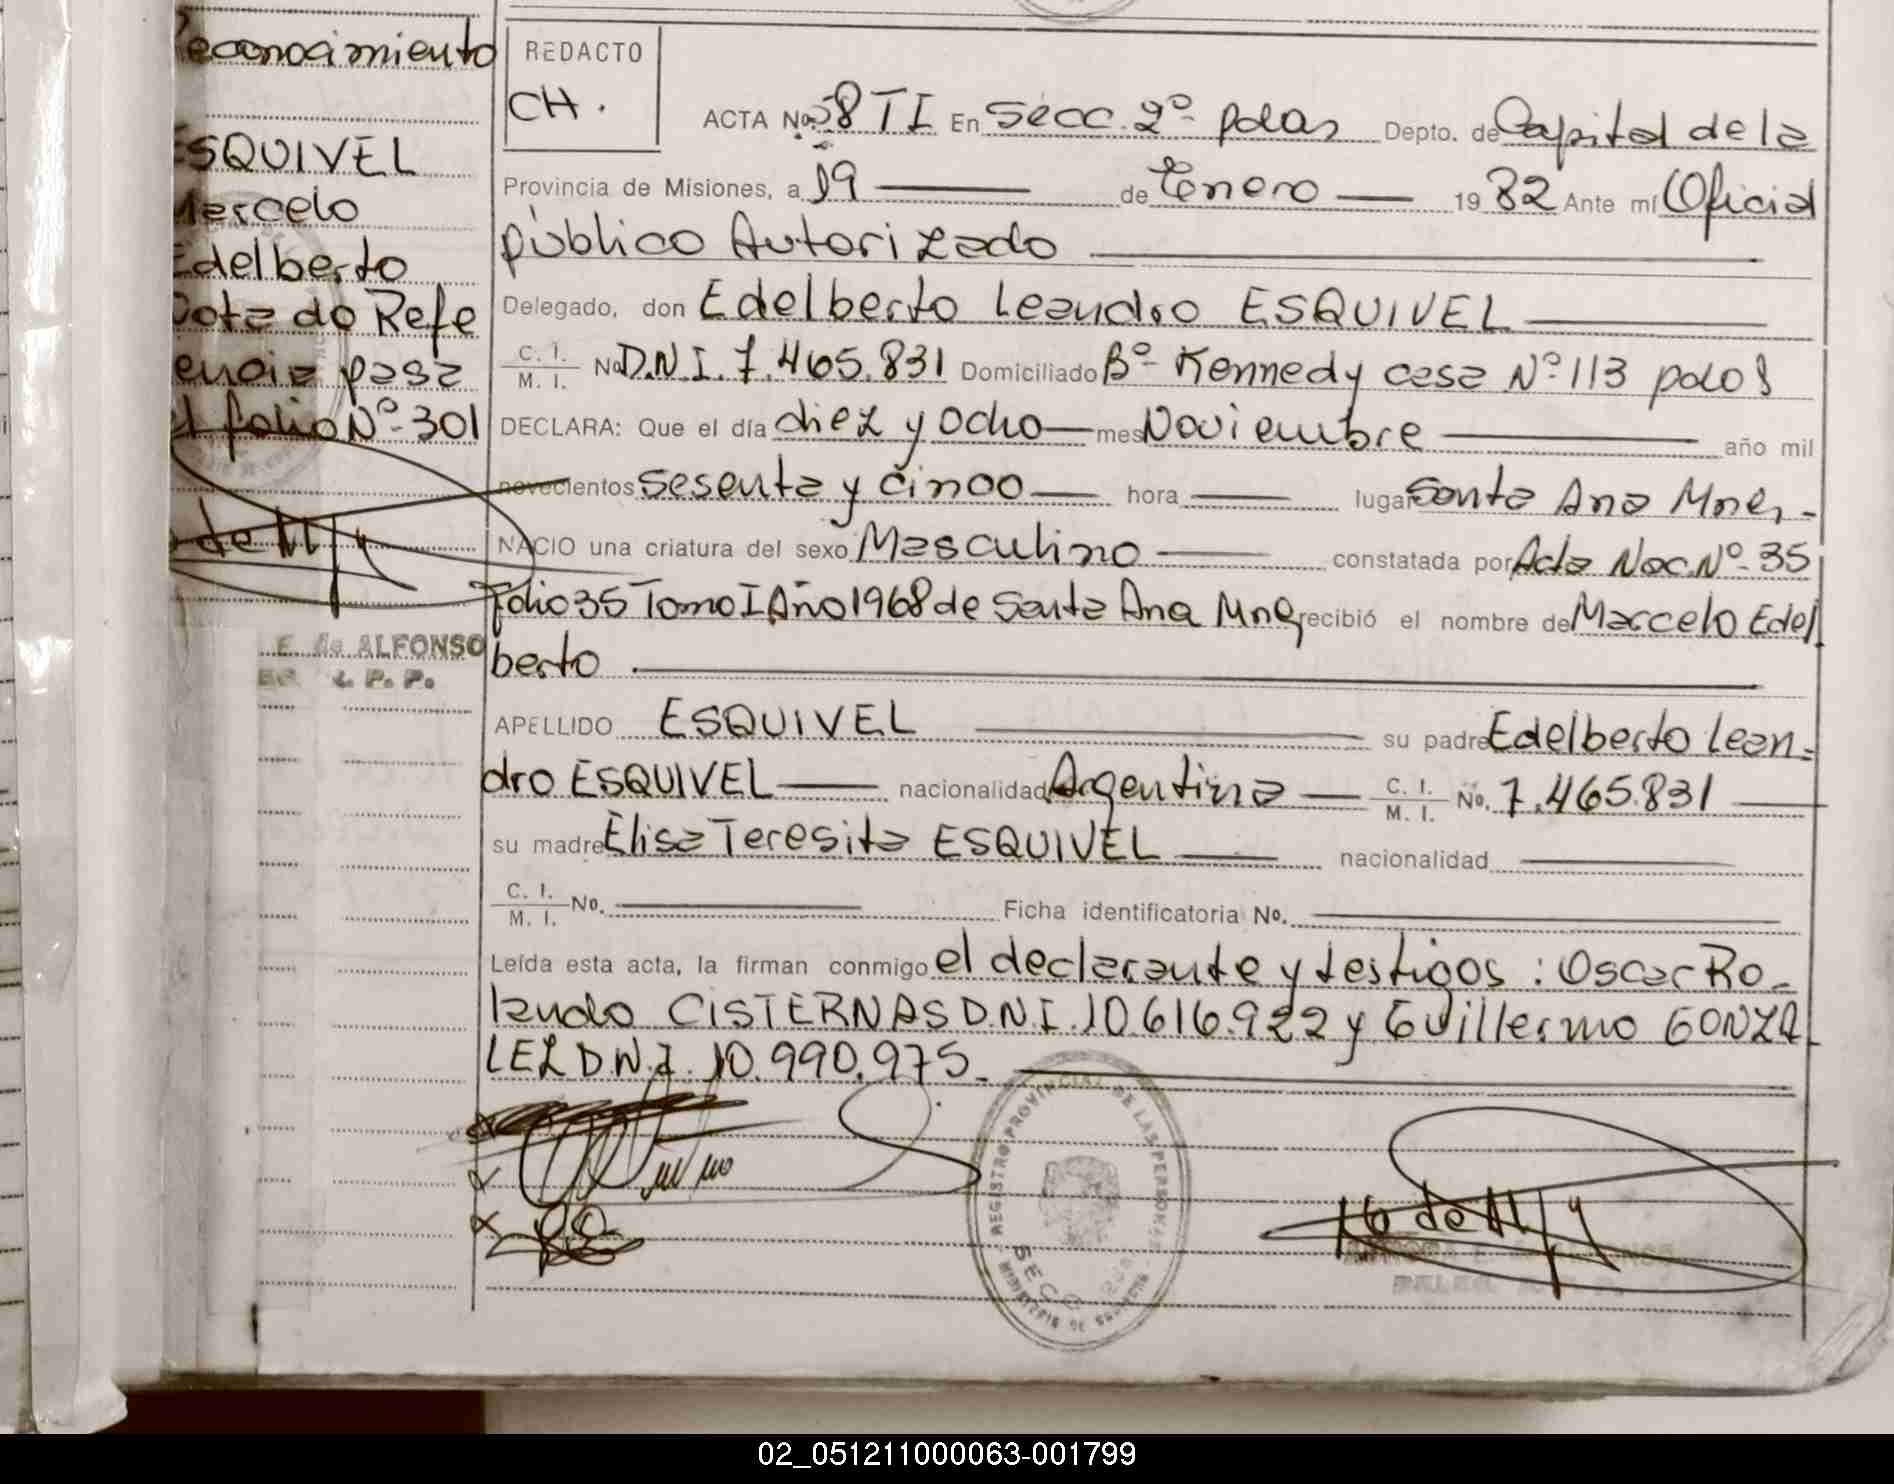 Reconocimiento
ESQUIVEL
Marcelo
Edelberto
Nota do Refe
encia pasa
al folio Nº 301
E. de ALFONSO
R. P. P.
REDACTO
CH.
ACTA No. 58 TI En Secc. 2º pdas Depto. de Capital de la
Provincia de Misiones, a 19 de Enero 1982 Ante mí Oficial
público Autorizado
Delegado, don Edelberto Leandro ESQUIVEL
C. I. / M. I. No D.N.I. 7.465.831 Domiciliado Bº Kennedy casa Nº 113 pdas
DECLARA: Que el día diez y ocho mes Noviembre año mil
novecientos sesenta y cinco hora lugar Santa Ana Mnes.
NACIO una criatura del sexo Masculino constatada por Acta Nac. Nº 35
folio 35 Tomo I Año 1968 de Santa Ana Mnes recibió el nombre de Marcelo Edel
berto
APELLIDO ESQUIVEL su padre Edelberto Lean-
dro ESQUIVEL nacionalidad Argentina C. I. / M. I. No. 7.465.831
su madre Elisa Teresita ESQUIVEL nacionalidad
C. I. / M. I. No. Ficha identificatoria No.
Leída esta acta, la firman conmigo el declarante y testigos: Oscar Ro-
lando CISTERNAS D.N.I. 10.616.922 y Guillermo GONZA
LEZ D.N.I. 10.990.975.
REGISTRO PROVINCIAL DE LAS PERSONAS
SECC
MINISTERIO DE
02_051211000063-001799